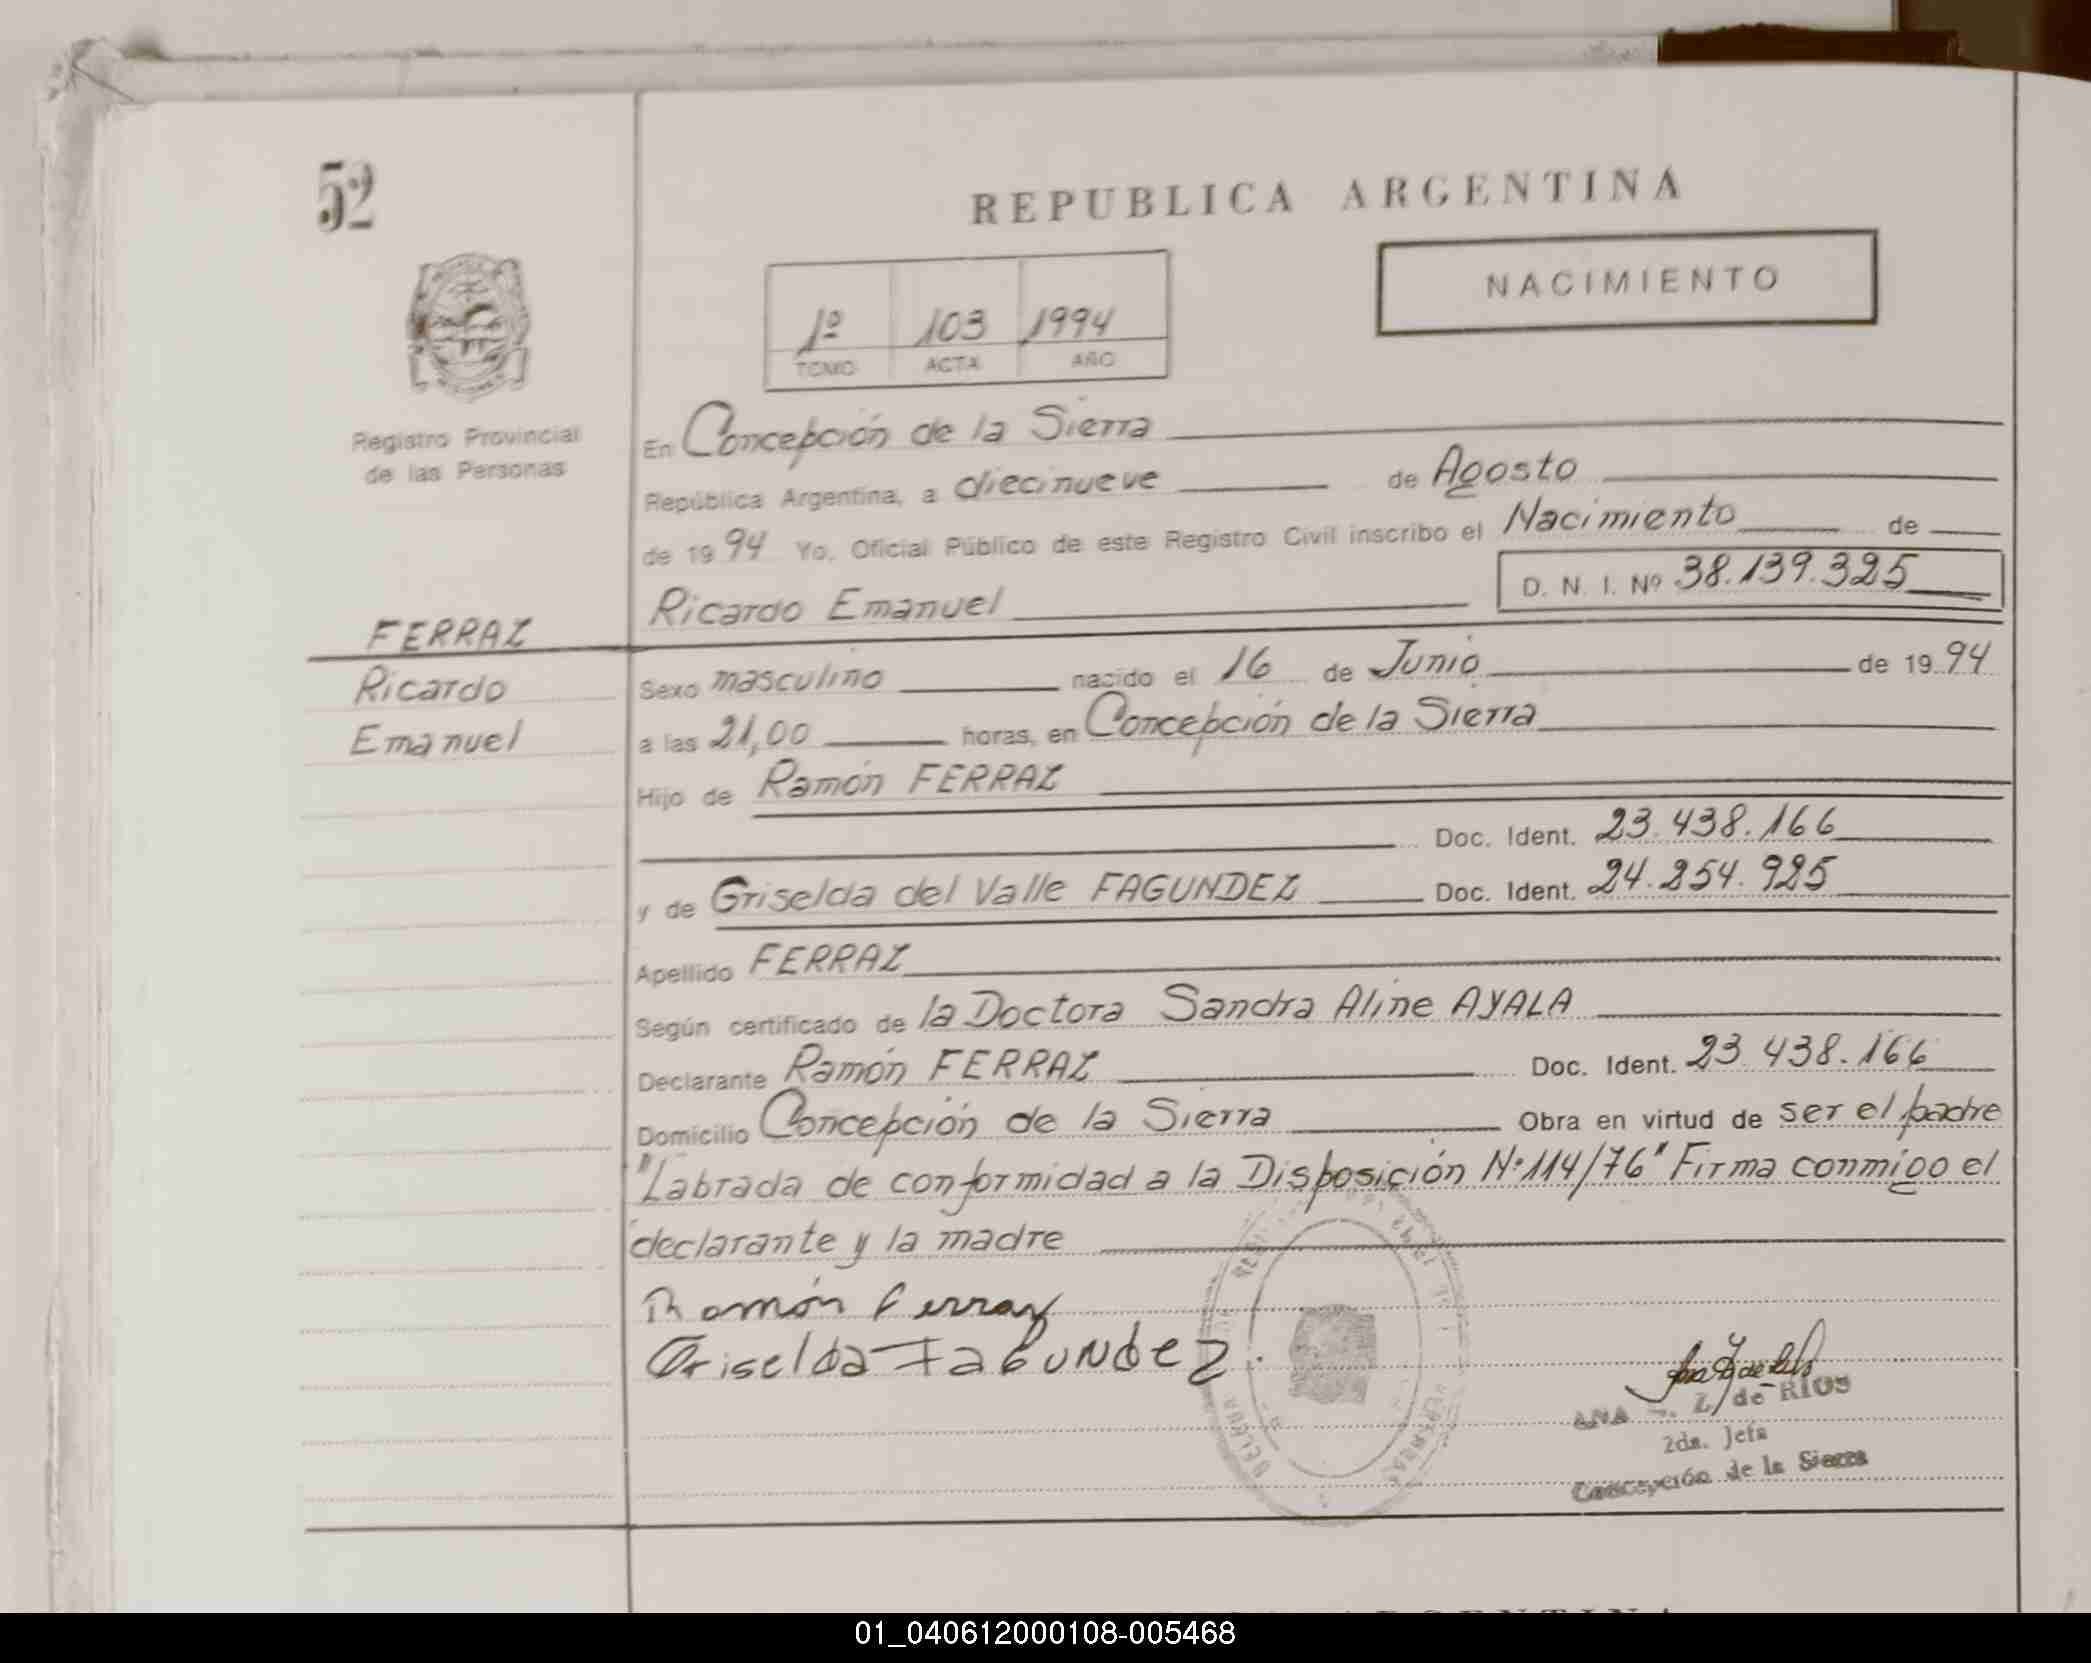 52
REPUBLICA ARGENTINA
NACIMIENTO
1º 103 1994
TOMO ACTA AÑO
Registro Provincial
de las Personas
En Concepción de la Sierra
República Argentina, a diecinueve de Agosto
de 1994 Yo, Oficial Público de este Registro Civil inscribo el Nacimiento de
Ricardo Emanuel D. N. I. Nº 38.139.325
FERRAZ
Ricardo
Emanuel
Sexo masculino nacido el 16 de Junio de 1994
a las 21,00 horas, en Concepción de la Sierra
Hijo de Ramón FERRAZ
Doc. Ident. 23.438.166
y de Griselda del Valle FAGUNDEZ Doc. Ident. 24.254.925
Apellido FERRAZ
Según certificado de la Doctora Sandra Aline AYALA
Declarante Ramón FERRAZ Doc. Ident. 23.438.166
Domicilio Concepción de la Sierra Obra en virtud de ser el padre
"Labrada de conformidad a la Disposición Nº 114/76" Firma conmigo el
declarante y la madre
Ramón Ferraz
Griselda Fagundez.
ANA Z. de RIOS
2da. Jefa
Concepción de la Sierra
01_040612000108-005468